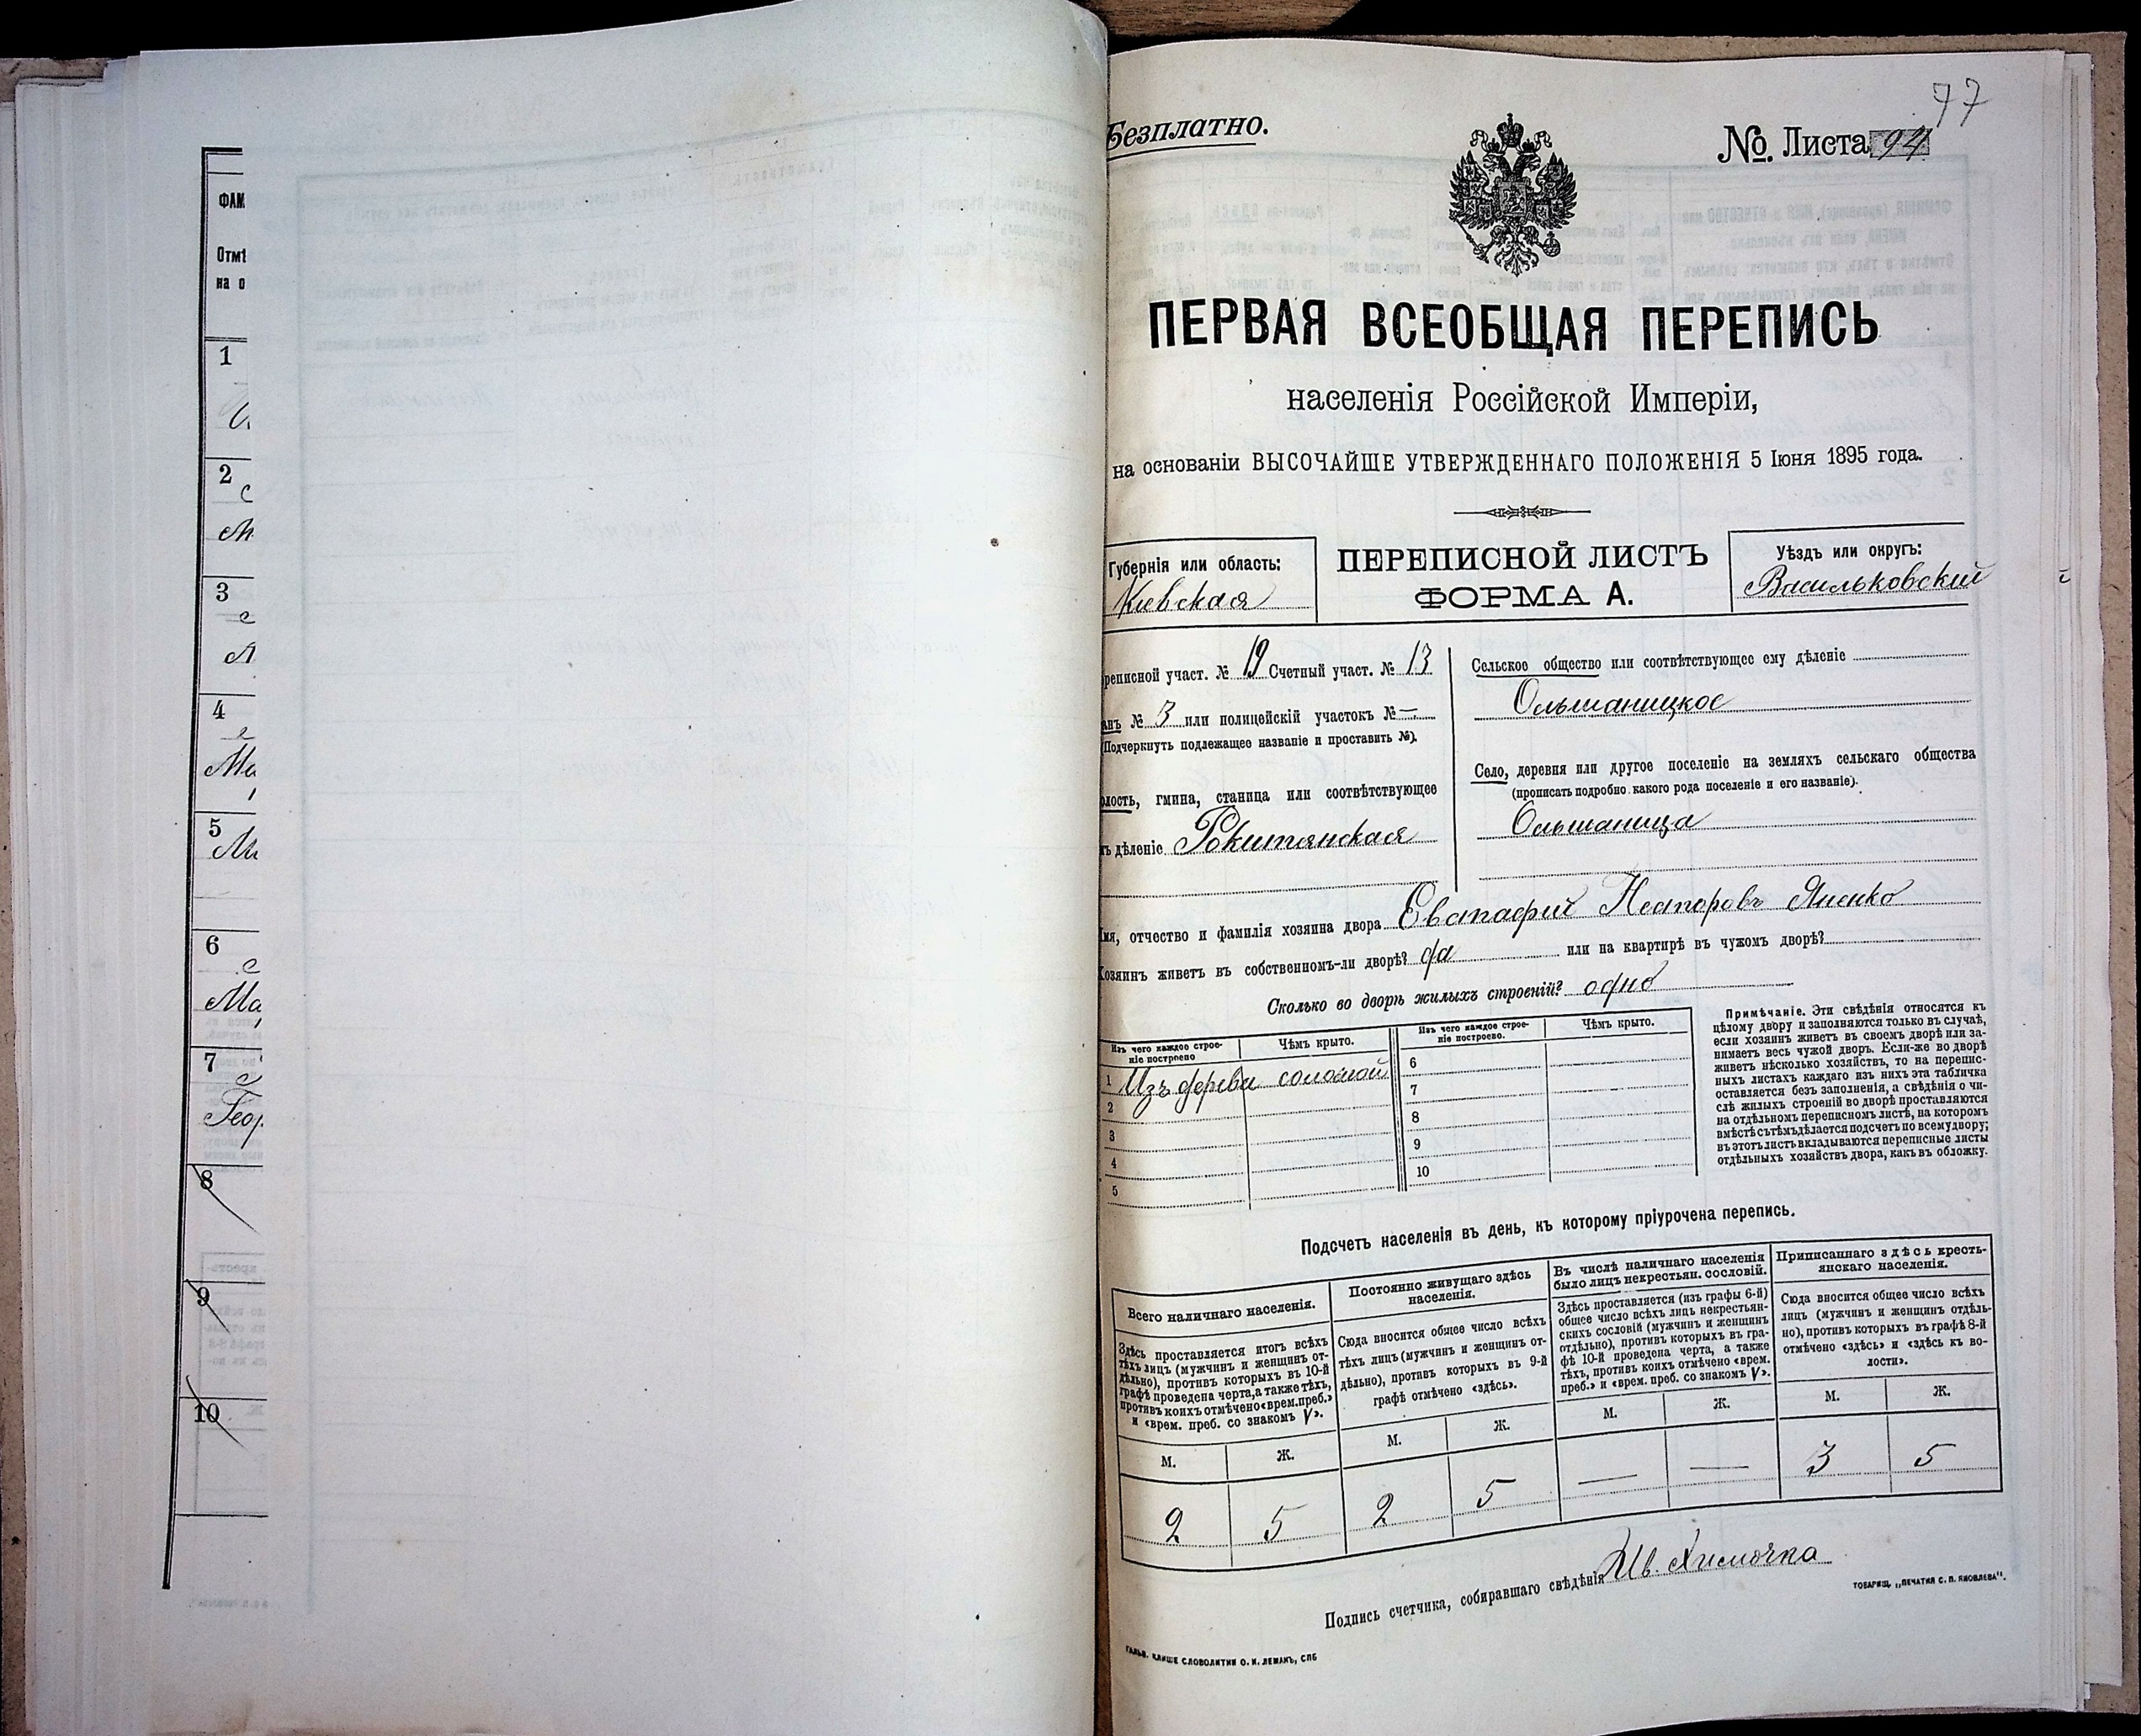 ФАМ
Отмѣ
на о
1
2
3
4
Ма
5
6
Ма
7
Геор
8
9
10
77
Безплатно.
№ Листа 94
ПЕРВАЯ ВСЕОБЩАЯ ПЕРЕПИСЬ
населенія Россійской Имперіи,
на основаніи ВЫСОЧАЙШЕ УТВЕРЖДЕННАГО ПОЛОЖЕНІЯ 5 Іюня 1895 года.
Губернія или область:
Кіевская
ПЕРЕПИСНОЙ ЛИСТЪ
ФОРМА А.
Уѣздъ или округъ:
Васильковскій
реписной участ. № 19 Счетный участ. № 13
анъ № 3 или полицейскій участокъ № —
(Подчеркнуть подлежащее названіе и проставить №).
лость, гмина, станица или соотвѣтствующее
ъ дѣленіе Рокитянская
Сельское общество или соотвѣтствующее ему дѣленіе
Ольшаницкое
Село, деревня или другое поселеніе на земляхъ сельскаго общества
(прописать подробно какого рода поселеніе и его названіе).
Ольшаница
Имя, отчество и фамилія хозяина двора Евстафій
Хозяинъ живетъ въ собственномъ-ли дворѣ? да или на квартирѣ въ чужомъ дворѣ?
Сколько во дворѣ жилыхъ строеній? одно
Изъ чего каждое строе-
ніе построено
Чѣмъ крыто.
1 Изъ дерева соломой
2
3
4
5
Изъ чего каждое строе-
ніе построено.
Чѣмъ крыто.
6
7
8
9
10
Примѣчаніе. Эти свѣдѣнія относятся къ
цѣлому двору и заполняются только въ случаѣ,
если хозяинъ живетъ въ своемъ дворѣ или за-
нимаетъ весь чужой дворъ. Если-же во дворѣ
живетъ нѣсколько хозяйствъ, то на перепис-
ныхъ листахъ каждаго изъ нихъ эта табличка
оставляется безъ заполненія, а свѣдѣнія о чи-
слѣ жилыхъ строеній во дворѣ проставляются
на отдѣльномъ переписномъ листѣ, на которомъ
вмѣстѣ съ тѣмъ дѣлается подсчетъ по всему двору;
въ этотъ листъ вкладываются переписные листы
отдѣльныхъ хозяйствъ двора, какъ въ обложку.
Подсчетъ населенія въ день, къ которому пріурочена перепись.
Всего наличнаго населенія.
Здѣсь проставляется итогъ всѣхъ
тѣхъ лицъ (мужчинъ и женщинъ от-
дѣльно), противъ которыхъ въ 10-й
графѣ проведена черта, а также тѣхъ,
противъ коихъ отмѣчено «врем. преб.»
и «врем. преб. со знакомъ V».
М. Ж.
2 5
Постоянно живущаго здѣсь
населенія.
Сюда вносится общее число всѣхъ
тѣхъ лицъ (мужчинъ и женщинъ от-
дѣльно), противъ которыхъ въ 9-й
графѣ отмѣчено «здѣсь».
М. Ж.
2 5
Въ числѣ наличнаго населенія
было лицъ некрестьян. сословій.
Здѣсь проставляется (изъ графы 6-й)
общее число всѣхъ лицъ некрестьян-
скихъ сословій (мужчинъ и женщинъ
отдѣльно), противъ которыхъ въ гра-
фѣ 10-й проведена черта, а также
тѣхъ, противъ коихъ отмѣчено «врем.
преб.» и «врем. преб. со знакомъ V».
М. Ж.
— —
Приписаннаго здѣсь кресть-
янскаго населенія.
Сюда вносится общее число всѣхъ
лицъ (мужчинъ и женщинъ отдѣль-
но), противъ которыхъ въ графѣ 8-й
отмѣчено «здѣсь» и «здѣсь къ во-
лости».
М. Ж.
3 5
Подпись счетчика, собиравшаго свѣдѣнія Ив.
ТОВАРИЩ. „ПЕЧАТНЯ С. П. ЯКОВЛЕВА".
ГАЛЬВ. КЛИШЕ СЛОВОЛИТНИ О. И. ЛЕМАНЪ, СПБ